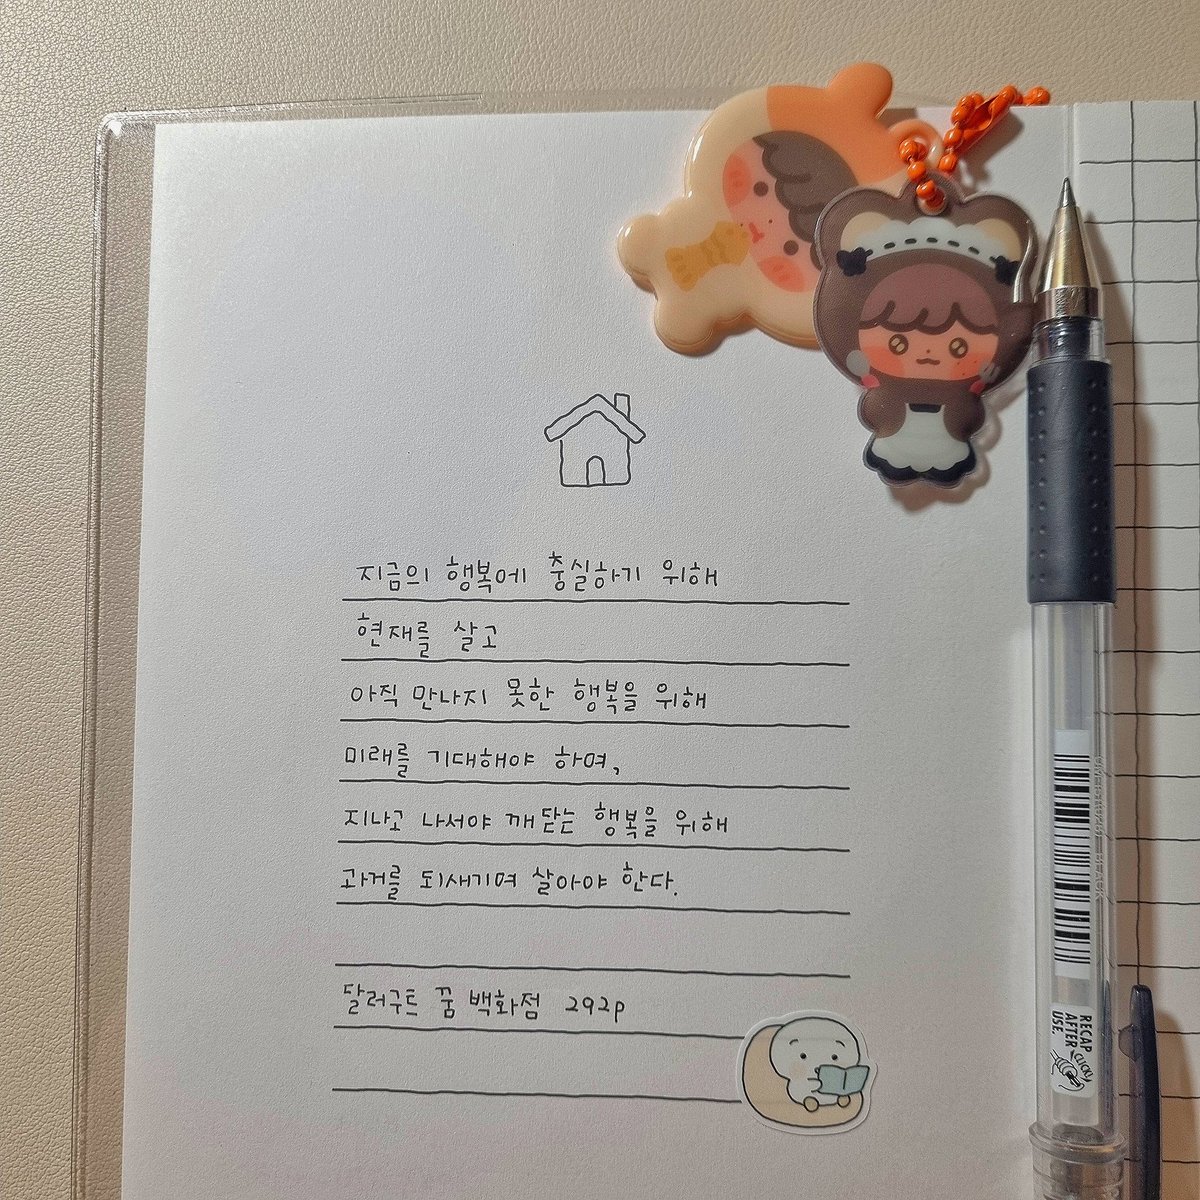 지금의 행복에 충실하기 위해
현재를 살고
아직 만나지 못한 행복을 위해
미래를 기대해야 하며,
지나고 나서야 깨닫는 행복을 위해
과거를 되새기며 살아야 한다.
달러구트 꿈 백화점 292p
RECAP
AFTER
USE.
CLICK!